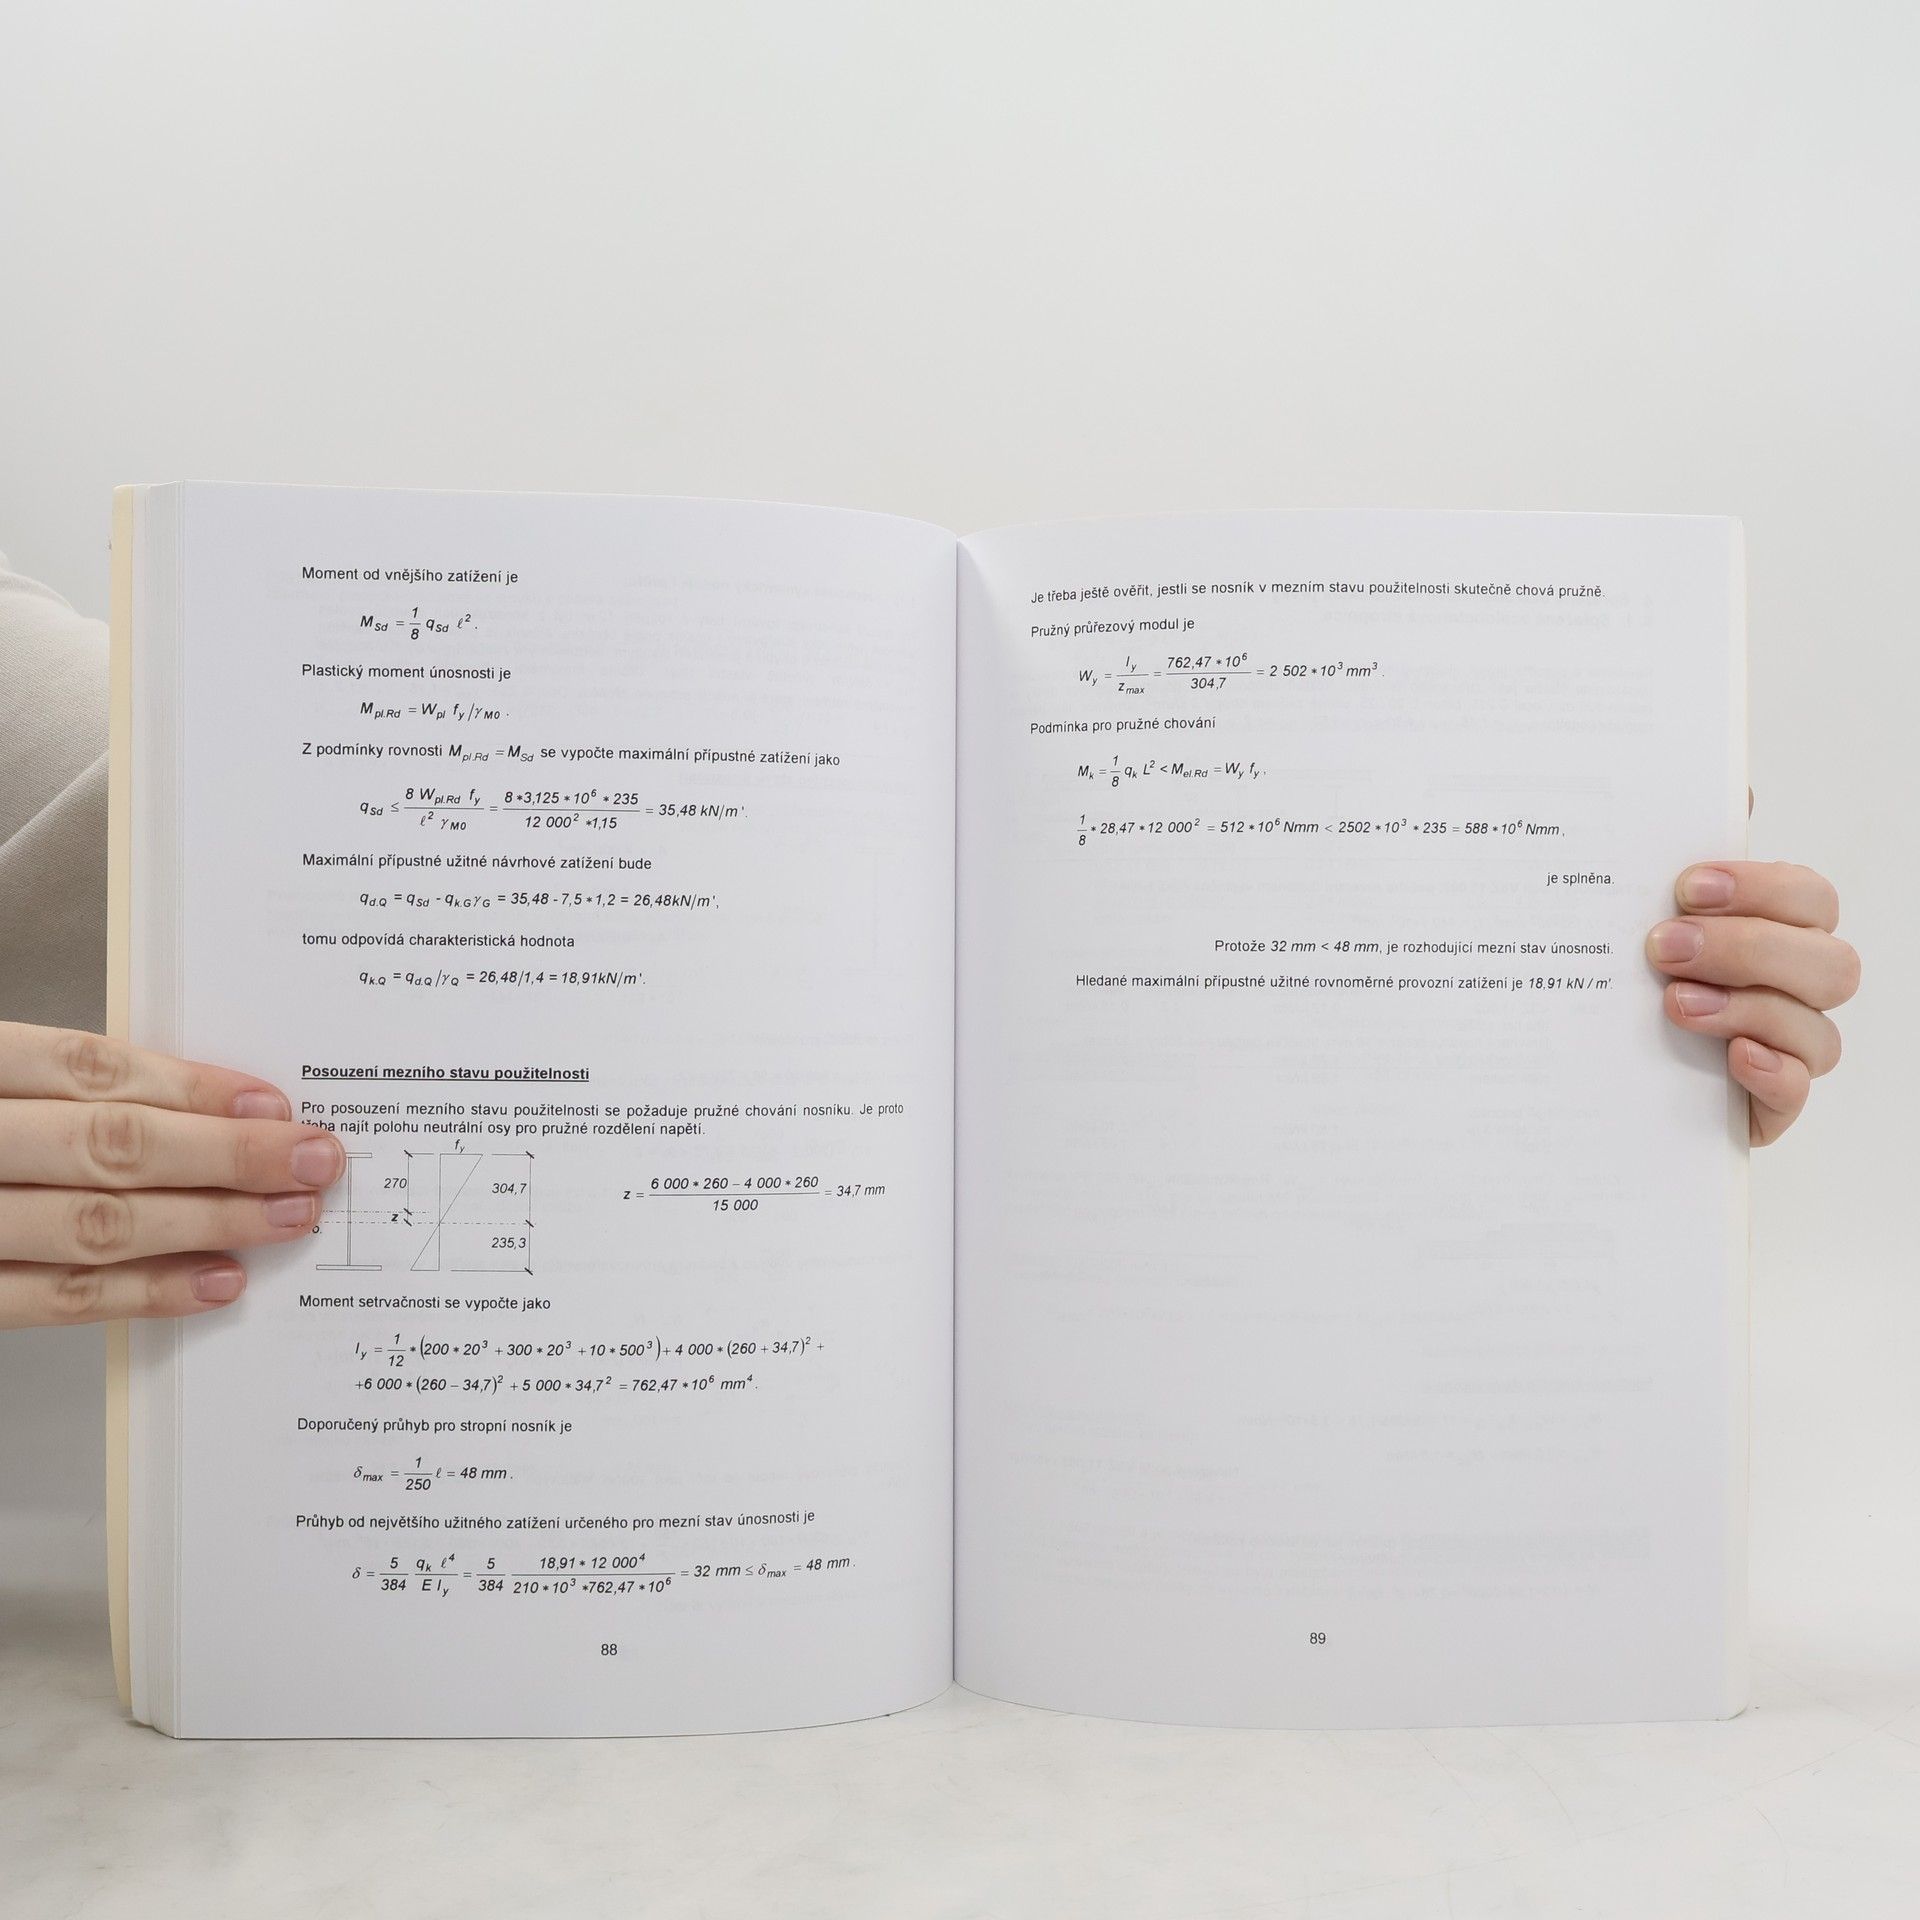 Moment od vnějšího zatížení je
M_Sd = 1/8 q_Sd ℓ².
Plastický moment únosnosti je
M_pl.Rd = W_pl f_y / γ_M0.
Z podmínky rovnosti M_pl.Rd = M_Sd se vypočte maximální přípustné zatížení jako
q_Sd ≤ (8 W_pl.Rd f_y)/(ℓ² γ_M0) = (8*3,125*10⁶*235)/(12 000²*1,15) = 35,48 kN/m'.
Maximální přípustné užitné návrhové zatížení bude
q_d.Q = q_Sd - q_k.G γ_G = 35,48 - 7,5*1,2 = 26,48kN/m',
tomu odpovídá charakteristická hodnota
q_k.Q = q_d.Q / γ_Q = 26,48/1,4 = 18,91kN/m'.
Posouzení mezního stavu použitelnosti
Pro posouzení mezního stavu použitelnosti se požaduje pružné chování nosníku. Je proto
najít polohu neutrální osy pro pružné rozdělení napětí.
f_y
270
304,7
z
235,3
z = (6 000*260 – 4 000*260)/(15 000) = 34,7 mm
Moment setrvačnosti se vypočte jako
I_y = 1/12*(200*20³ + 300*20³ + 10*500³)+ 4 000*(260 + 34,7)² +
+6 000*(260 – 34,7)² + 5 000*34,7² = 762,47*10⁶ mm⁴.
Doporučený průhyb pro stropní nosník je
δ_max = 1/250 ℓ = 48 mm.
Průhyb od největšího užitného zatížení určeného pro mezní stav únosnosti je
δ = 5/384 (q_k ℓ⁴)/(E I_y) = 5/384 (18,91*12 000⁴)/(210*10³*762,47*10⁶) = 32 mm ≤ δ_max = 48 mm.
88
Je třeba ještě ověřit, jestli se nosník v mezním stavu použitelnosti skutečně chová pružně.
Pružný průřezový modul je
W_y = I_y/z_max = (762,47*10⁶)/(304,7) = 2 502*10³ mm³.
Podmínka pro pružné chování
M_k = 1/8 q_k L² < M_el.Rd = W_y f_y,
1/8*28,47*12 000² = 512*10⁶ Nmm < 2502*10³*235 = 588*10⁶ Nmm,
je splněna.
Protože 32 mm < 48 mm, je rozhodující mezní stav únosnosti.
Hledané maximální přípustné užitné rovnoměrné provozní zatížení je 18,91 kN / m'.
89